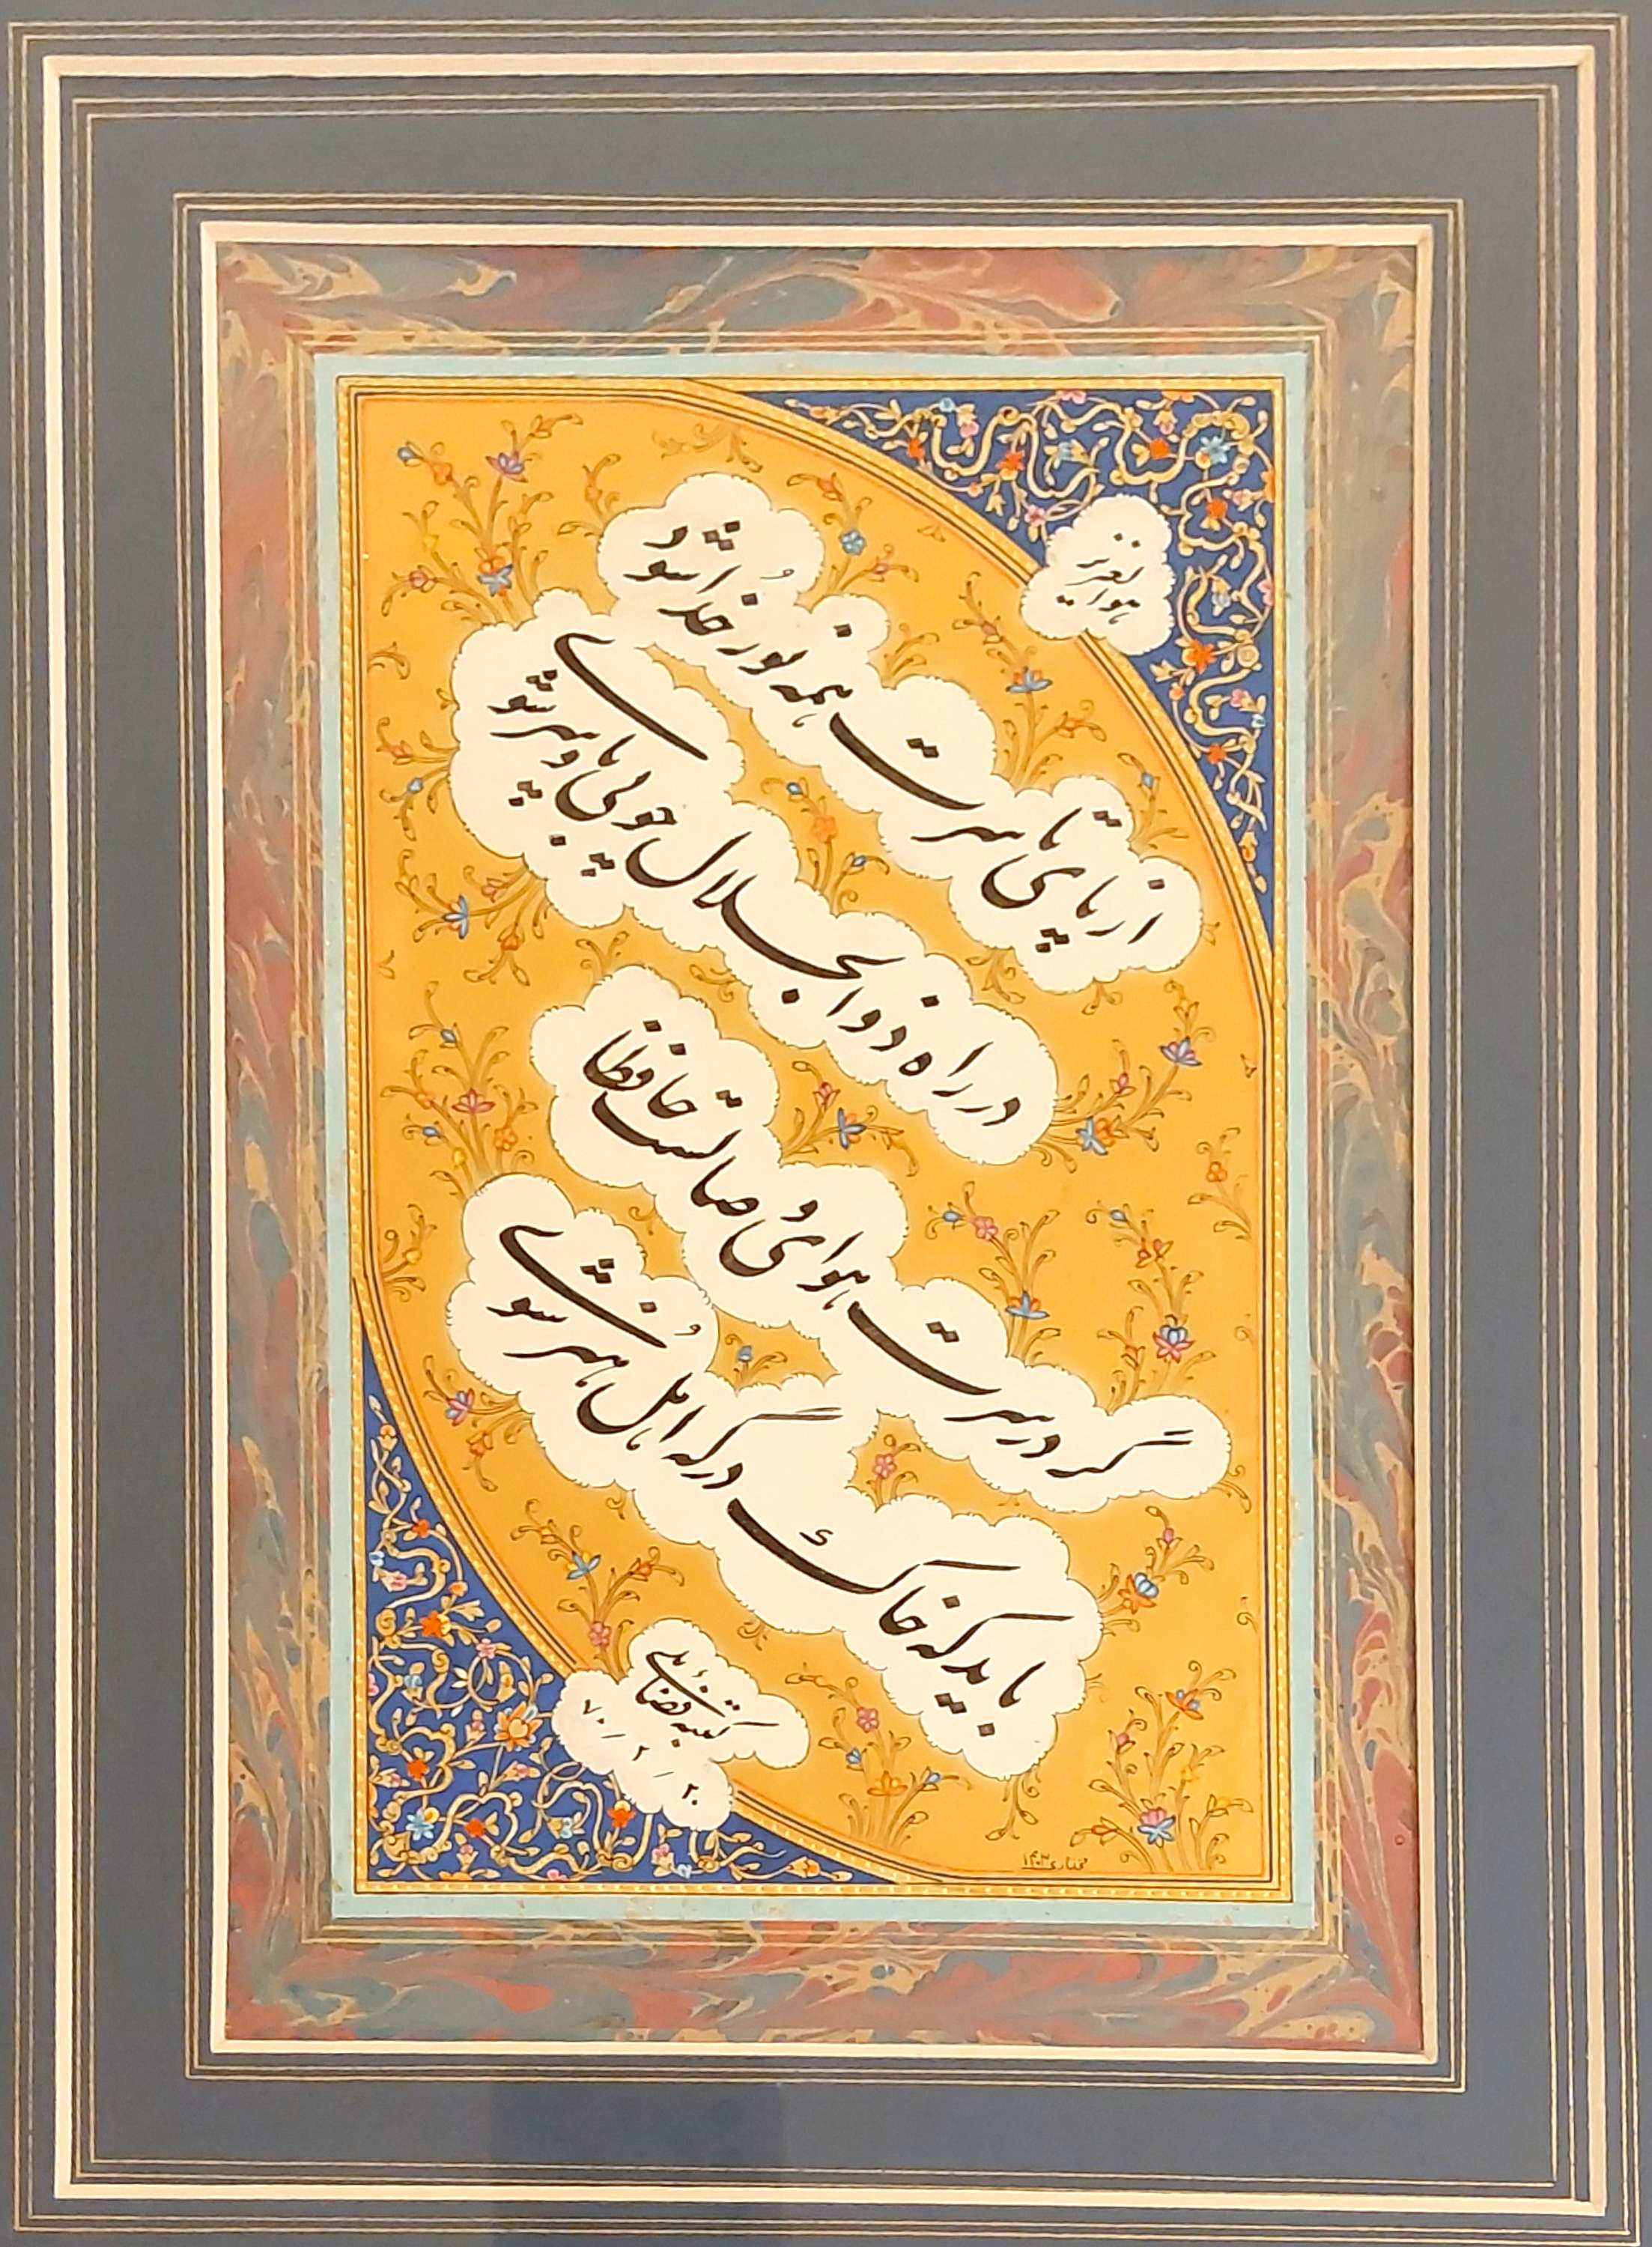 هوالعزیز
از پای تا سرت همه نور خدا شود
در راه ذوالجلال چو بی پا و سر شوی
گر در سرت هوای وصالست حافظا
باید که خاک درگه اهل هنر شوی
کتبه فضائلی
۷۰/۲/۲۰
مختاری ۱۴۰۳